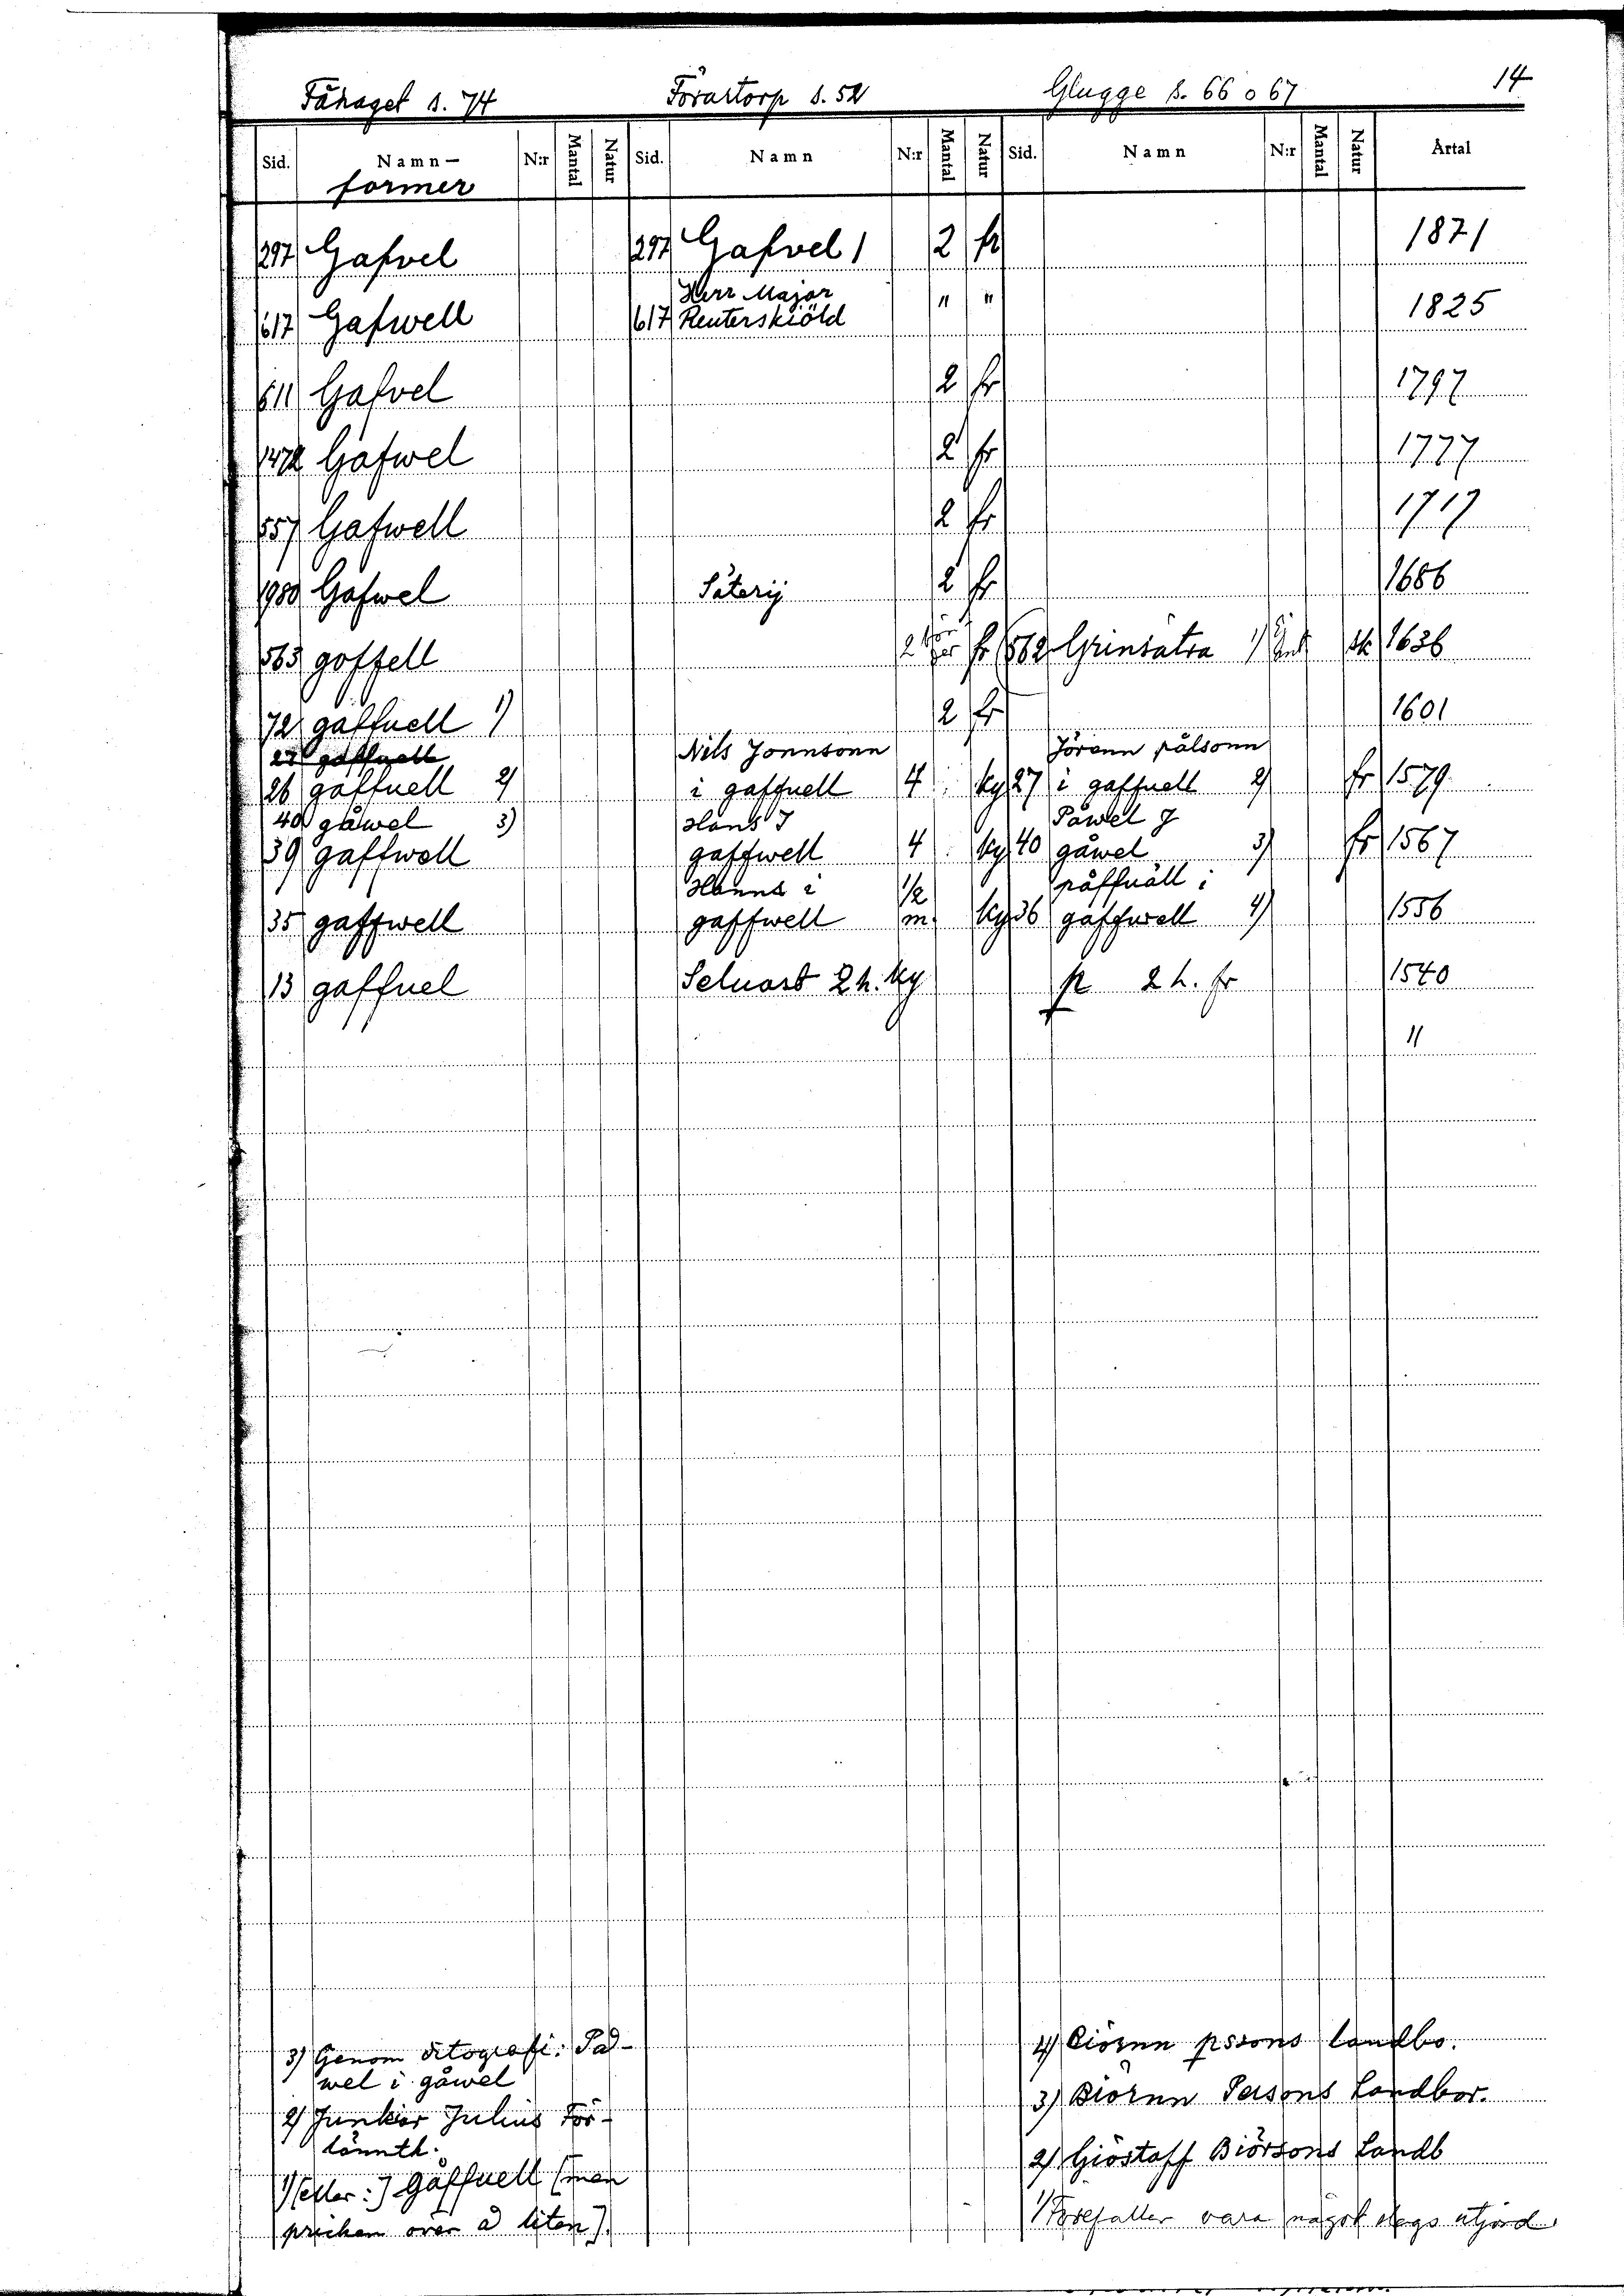 Fåhaget s. 74 Forartorp s. 52 Glugge s. 66 o 67 14
Sid. Namn- N:r Mantal Natur Sid. Namn N:r Mantal Natur Sid. Namn N:r Mantal Natur Årtal
former
297 Gafvel 297 Gafvel 1 2 fr 1871
Herr Major
617 Gafwell 617 Reuterskiöld " " 1825
611 Gafvel 2 fr 1797
1472 Gafwel 2 fr 1777
557 Gafwell 2 fr 1717
1980 Gafwel Säterij 2 fr 1686
563 goffell 2 fr 562 Grinsätra 1) sk 1636
72 gaffuell 1) 2 fr 1601
27 gaffuell Nils Jonnsonn Jörann pålsonn
26 gaffuell 2) i gaffuell 4 ky 27 i gaffuell 2) fr 1579
40 gåwel 3) Hans J Påwel J
39 gaffwell gaffwell 4 ky 40 gåwel 3) fr 1567
Hanns i 1/2 påffuäll i
35 gaffwell gaffwell m. ky 36 gaffwell 4) 1556
13 gaffuel Seluast 2 h. ky p 2 h. fr 1540
"
3) Genom ditografi: På-
wel i gåwel
2) Junker Julius För-
lännth.
1) [eller:] Gåffuell [men
pricken över a liten].
4) Biörnn pssons landbo.
3) Biörnn Persons Landbor.
2) Giöstaff Biörsons Landb
1) Förefaller vara något slags utjord